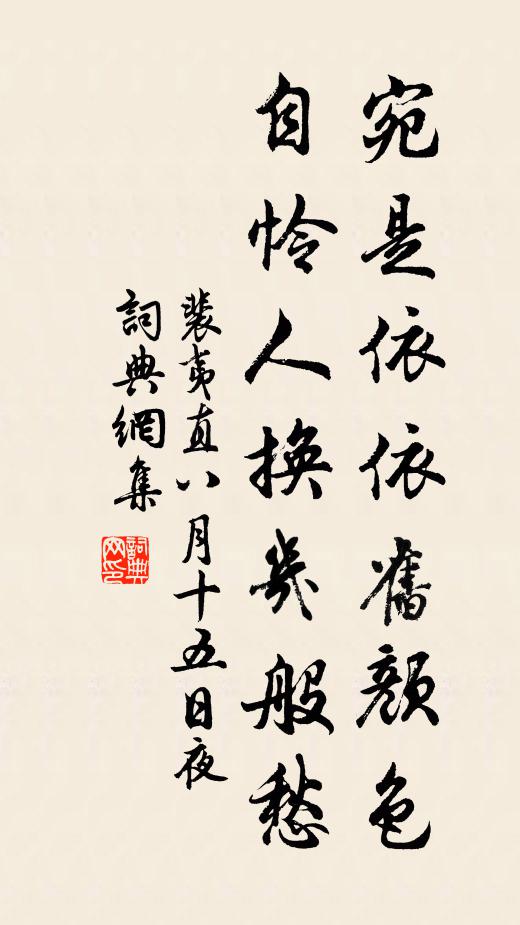 宛是依依舊顏色
自怜人換幾般愁
裴夷直八月十五日夜
詞典網集
詞典網印